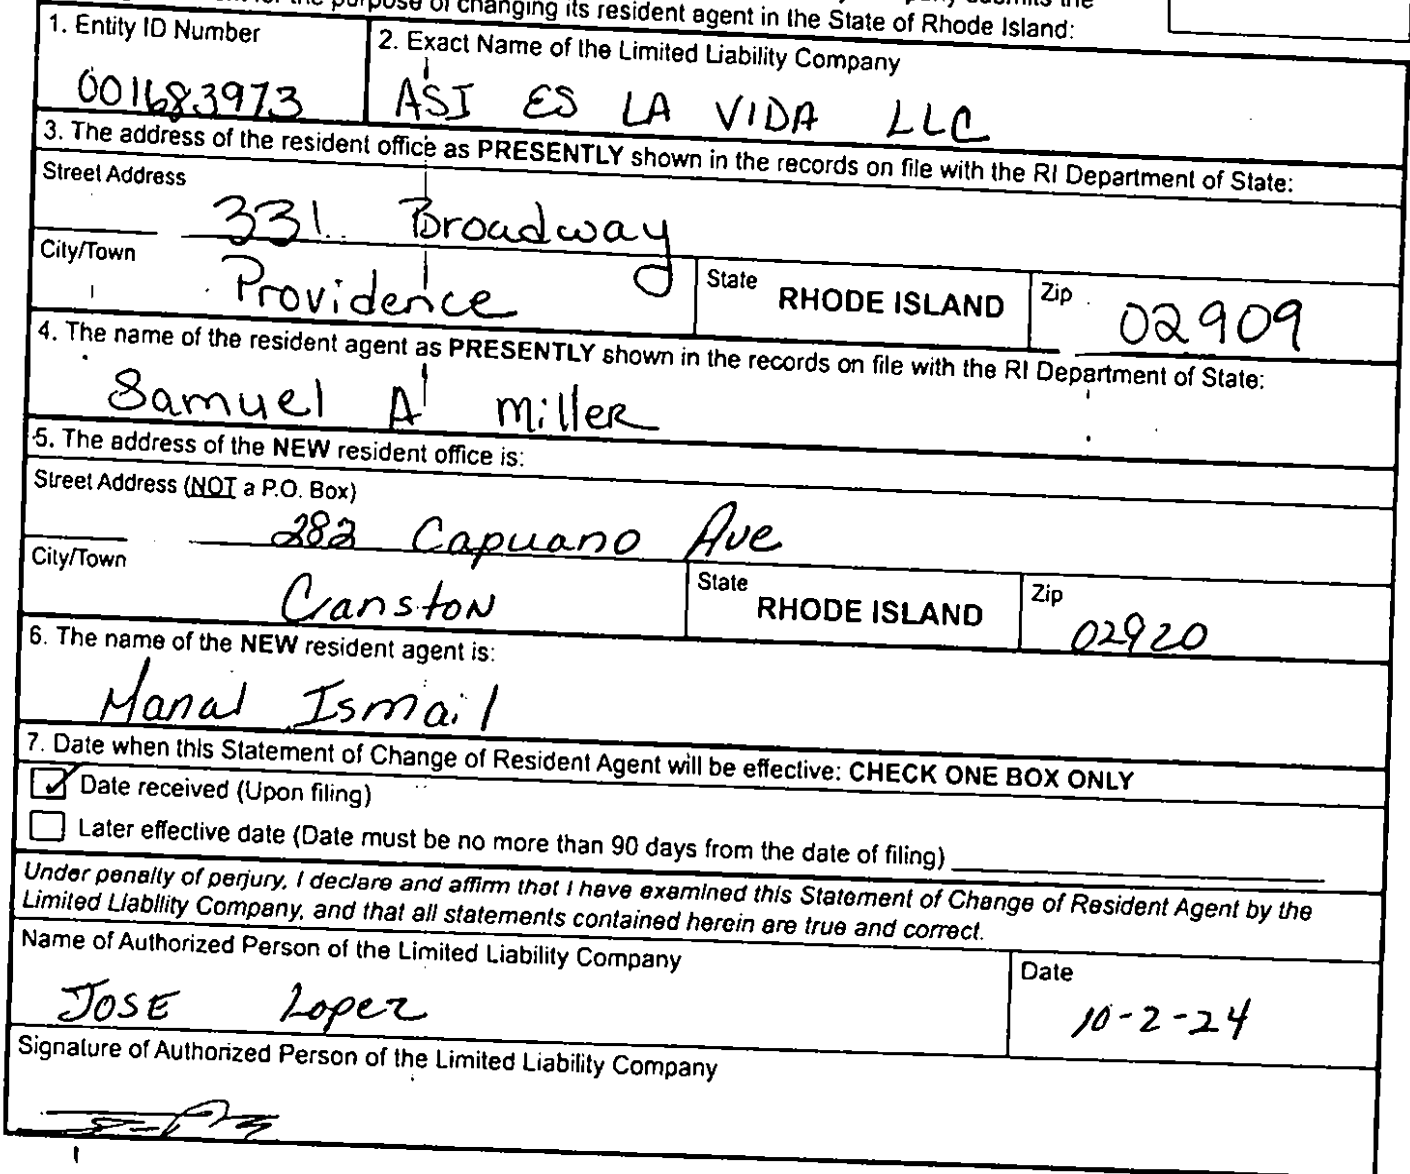 purpose of changing its resident agent in the State of Rhode Island:
1. Entity ID Number
2. Exact Name of the Limited Liability Company
001683973
ASI ES LA VIDA LLC
3. The address of the resident office as PRESENTLY shown in the records on file with the RI Department of State:
Street Address
331 Broadway
City/Town
Providence
State
RHODE ISLAND
Zip
02909
4. The name of the resident agent as PRESENTLY shown in the records on file with the RI Department of State:
Samuel A Miller
5. The address of the NEW resident office is:
Street Address (NOT a P.O. Box)
282 Capuano Ave
City/Town
Canston
State
RHODE ISLAND
Zip
02920
6. The name of the NEW resident agent is:
Manal Ismail
7. Date when this Statement of Change of Resident Agent will be effective: CHECK ONE BOX ONLY
Date received (Upon filing)
Later effective date (Date must be no more than 90 days from the date of filing)
Under penalty of perjury, I declare and affirm that I have examined this Statement of Change of Resident Agent by the
Limited Liability Company, and that all statements contained herein are true and correct.
Name of Authorized Person of the Limited Liability Company
Date
JOSE Lopez
10-2-24
Signature of Authorized Person of the Limited Liability Company